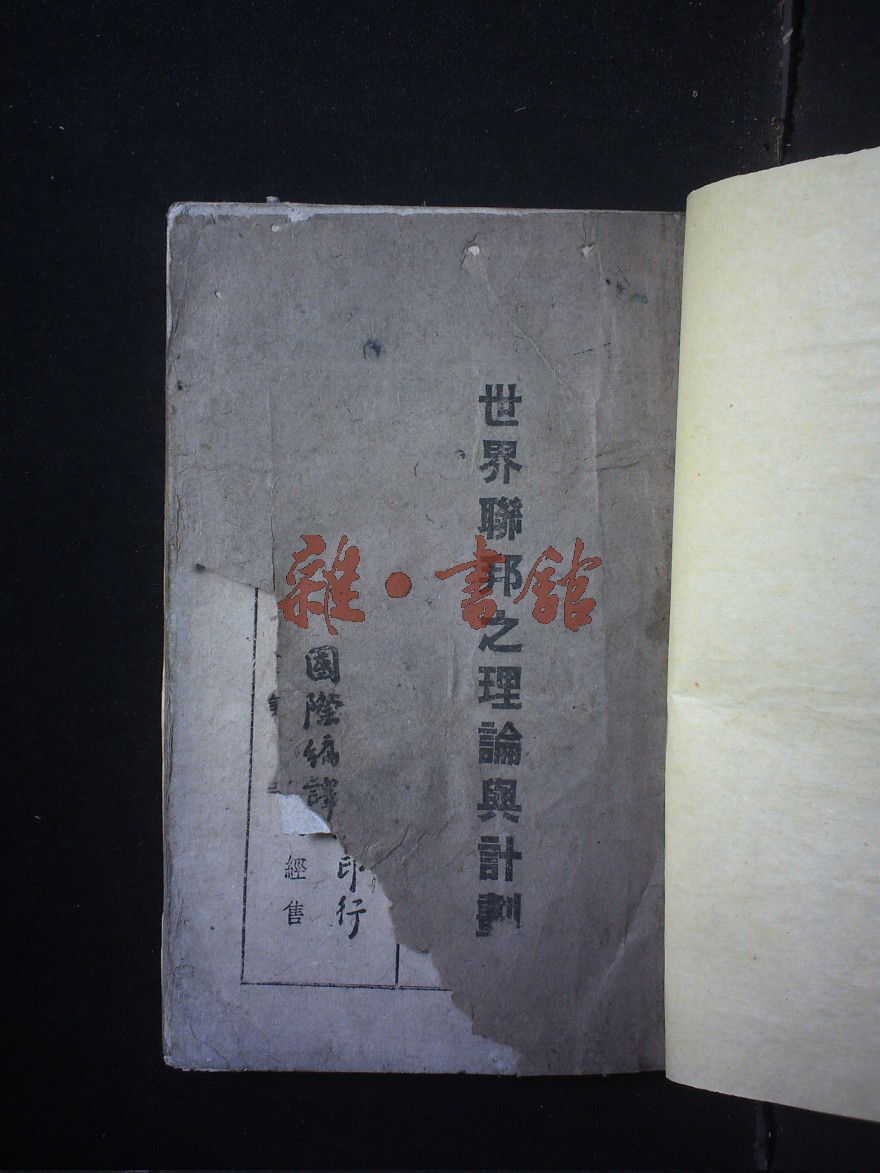 世界聯邦之理論與計劃
國際編譯
印行
經售
雜·書館